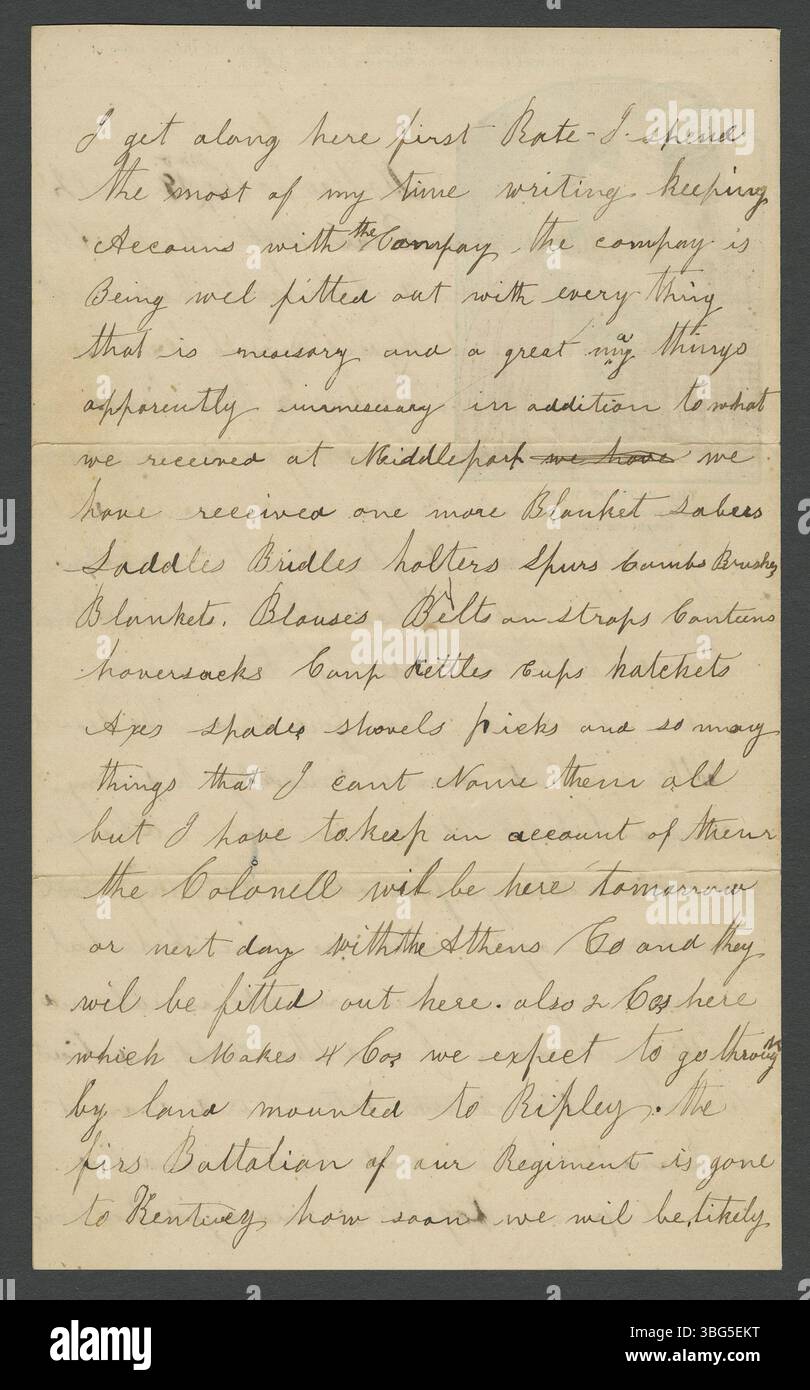 I get along here first Rate - I spend
the most of my time writing keeping
Accouns with the Compay the compay is
Being wel fitted out with every thing
that is necessary and a great may things
apparently unnecessary in addition to what
we received at Middleport we have we
have received one more Blanket Sabers
Saddles Bridles holters Spurs Combs Brushes
Blankets. Blouses Belts on straps Canteens
haversacks Camp Kettles cups hatchets
Axes spades shovels picks and so many
things that I cant Name them all
but I have to keep an account of them
the Colonell wil be here tomorrow
or next day with the Athens Co and they
wil be fitted out here. also 2 Cos here
which Makes 4 Cos we expect to go through
by land mounted to Ripley. the
firs Battalian of our Regiment is gone
to Kentucy how soon we wil be likely
alamy
Image ID: 3BG5EKT
www.alamy.com